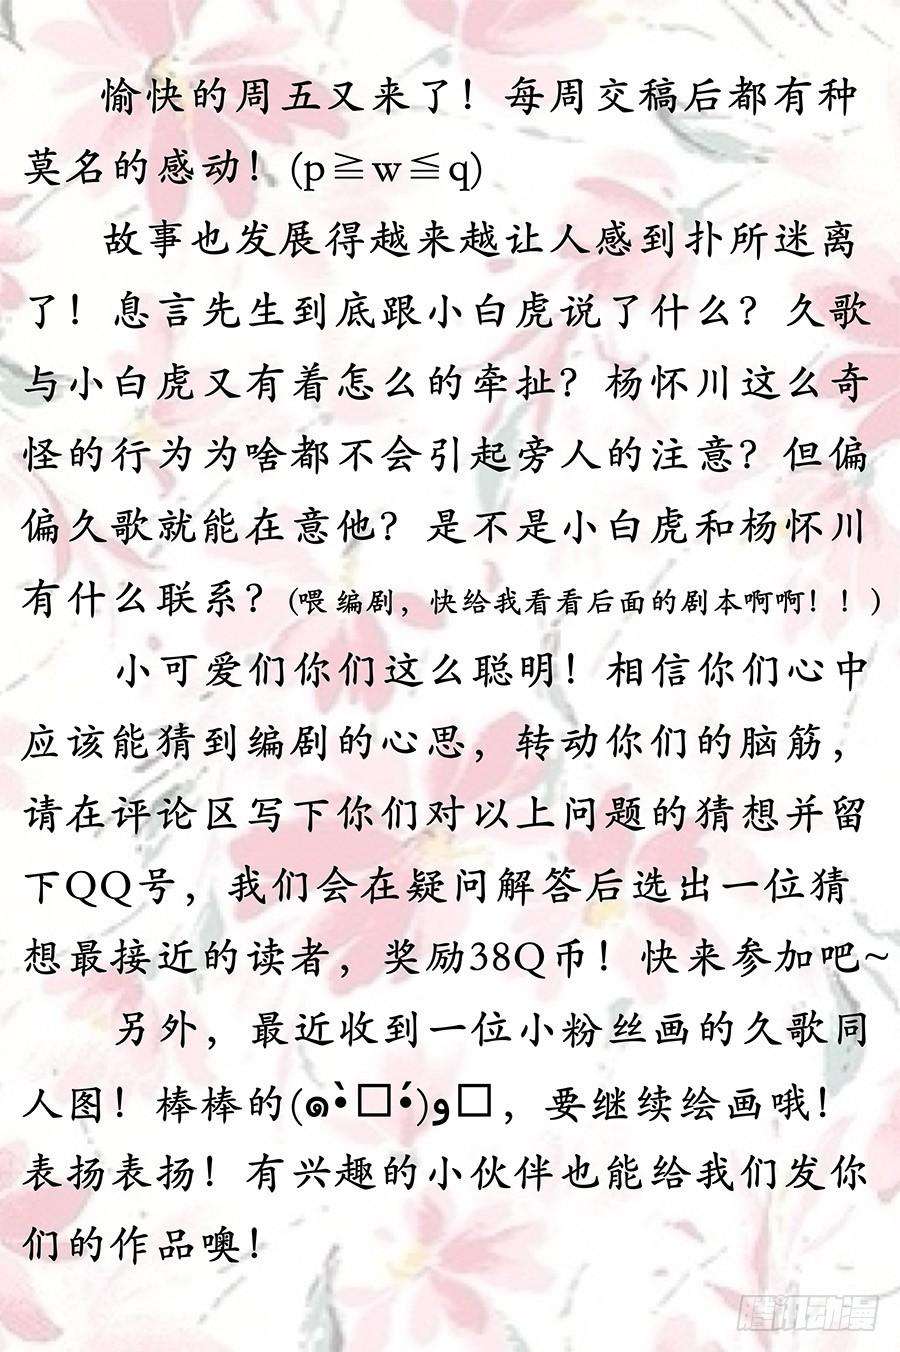 愉快的周五又来了！每周交稿后都有种
莫名的感动！(p≧w≦q)
故事也发展得越来越让人感到扑所迷离
了！息言先生到底跟小白虎说了什么？久歌
与小白虎又有着怎么的牵扯？杨怀川这么奇
怪的行为为啥都不会引起旁人的注意？但偏
偏久歌就能在意他？是不是小白虎和杨怀川
有什么联系？(喂 编剧，快给我看看后面的剧本啊啊！！)
小可爱们你们这么聪明！相信你们心中
应该能猜到编剧的心思，转动你们的脑筋，
请在评论区写下你们对以上问题的猜想并留
下QQ号，我们会在疑问解答后选出一位猜
想最接近的读者，奖励38Q币！快来参加吧~
另外，最近收到一位小粉丝画的久歌同
人图！棒棒的(๑•̀□•́)و□，要继续绘画哦！
表扬表扬！有兴趣的小伙伴也能给我们发你
们的作品噢！
腾讯动漫